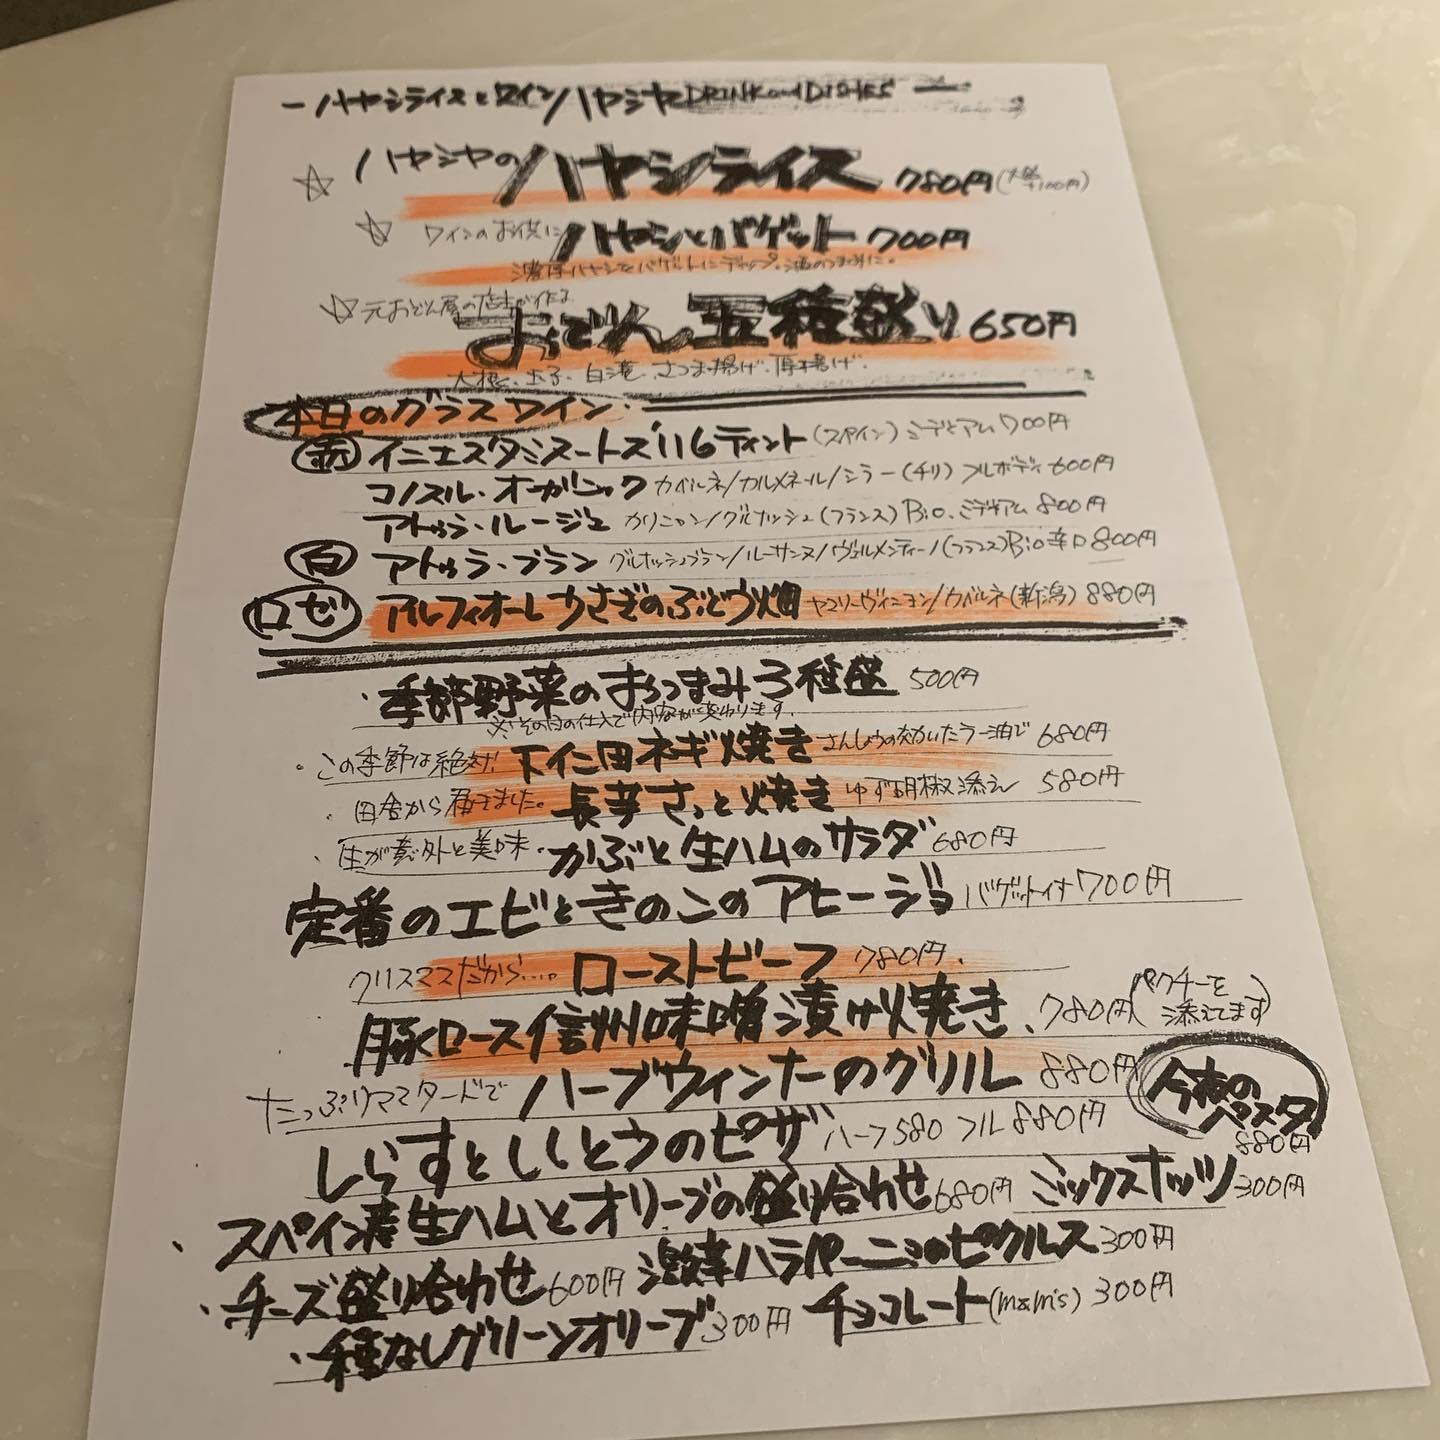 ーハヤシライスとワインハヤシヤDRINK and DISHESー
☆ハヤシヤのハヤシライス 780円(大盛+100円)
☆ワインのお供にハヤシとバゲット 700円
濃厚ハヤシをバゲットにディップ。酒のつまみに。
☆元おでん屋の店主が作る
おでん五種盛り 650円
大根、玉子、白滝、さつま揚げ、厚揚げ
本日のグラスワイン
赤 イニエスタミヌートス'116ティント(スペイン)ミディアム 700円
コノスル・オーガニック カベルネ/カルメネール/シラー(チリ)フルボディ 600円
アトゥラ・ルージュ カリニャン/グルナッシュ(フランス)Bio、ミディアム 800円
白 アトゥラ・ブラン グルナッシュブラン/ルーサンヌ/ヴェルメンティーノ(フランス)Bio辛口 800円
ロゼ アルフィオーレうさぎのぶどう畑 ヤマソーヴィニヨン/カベルネ(新潟)880円
・季節野菜のおつまみ3種盛 500円
※その日の仕入で内容が変わります。
・この季節は絶対!下仁田ネギ焼き さんしょうの効いたラー油で 680円
・田舎から届きました。長芋さっと焼き ゆず胡椒添え 580円
・生が意外と美味・かぶと生ハムのサラダ 680円
定番のエビときのこのアヒージョ バゲット付 700円
クリスマスだから.....ローストビーフ 780円.
豚ロース信州味噌漬け焼き、780円(パクチーを添えてます)
たっぷりマスタードで ハーブウィンナーのグリル 880円
今夜のパスタ 880円
しらすとししとうのピザ ハーフ580 フル880円
・スペイン産生ハムとオリーブの盛り合わせ 680円 ミックスナッツ 300円
・チーズ盛り合わせ 600円 激辛ハラペーニョのピクルス 300円
・種なしグリーンオリーブ 300円 チョコレート(m&m's) 300円